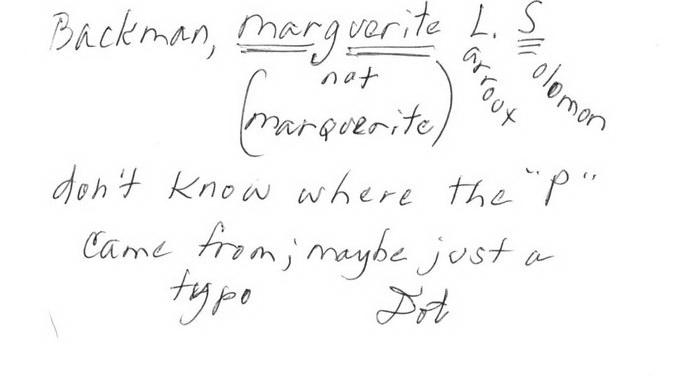 Backman, marguerite L. S
arroux olomon
not
(marquerite)
don't know where the "P"
came from; maybe just a
typo Dot